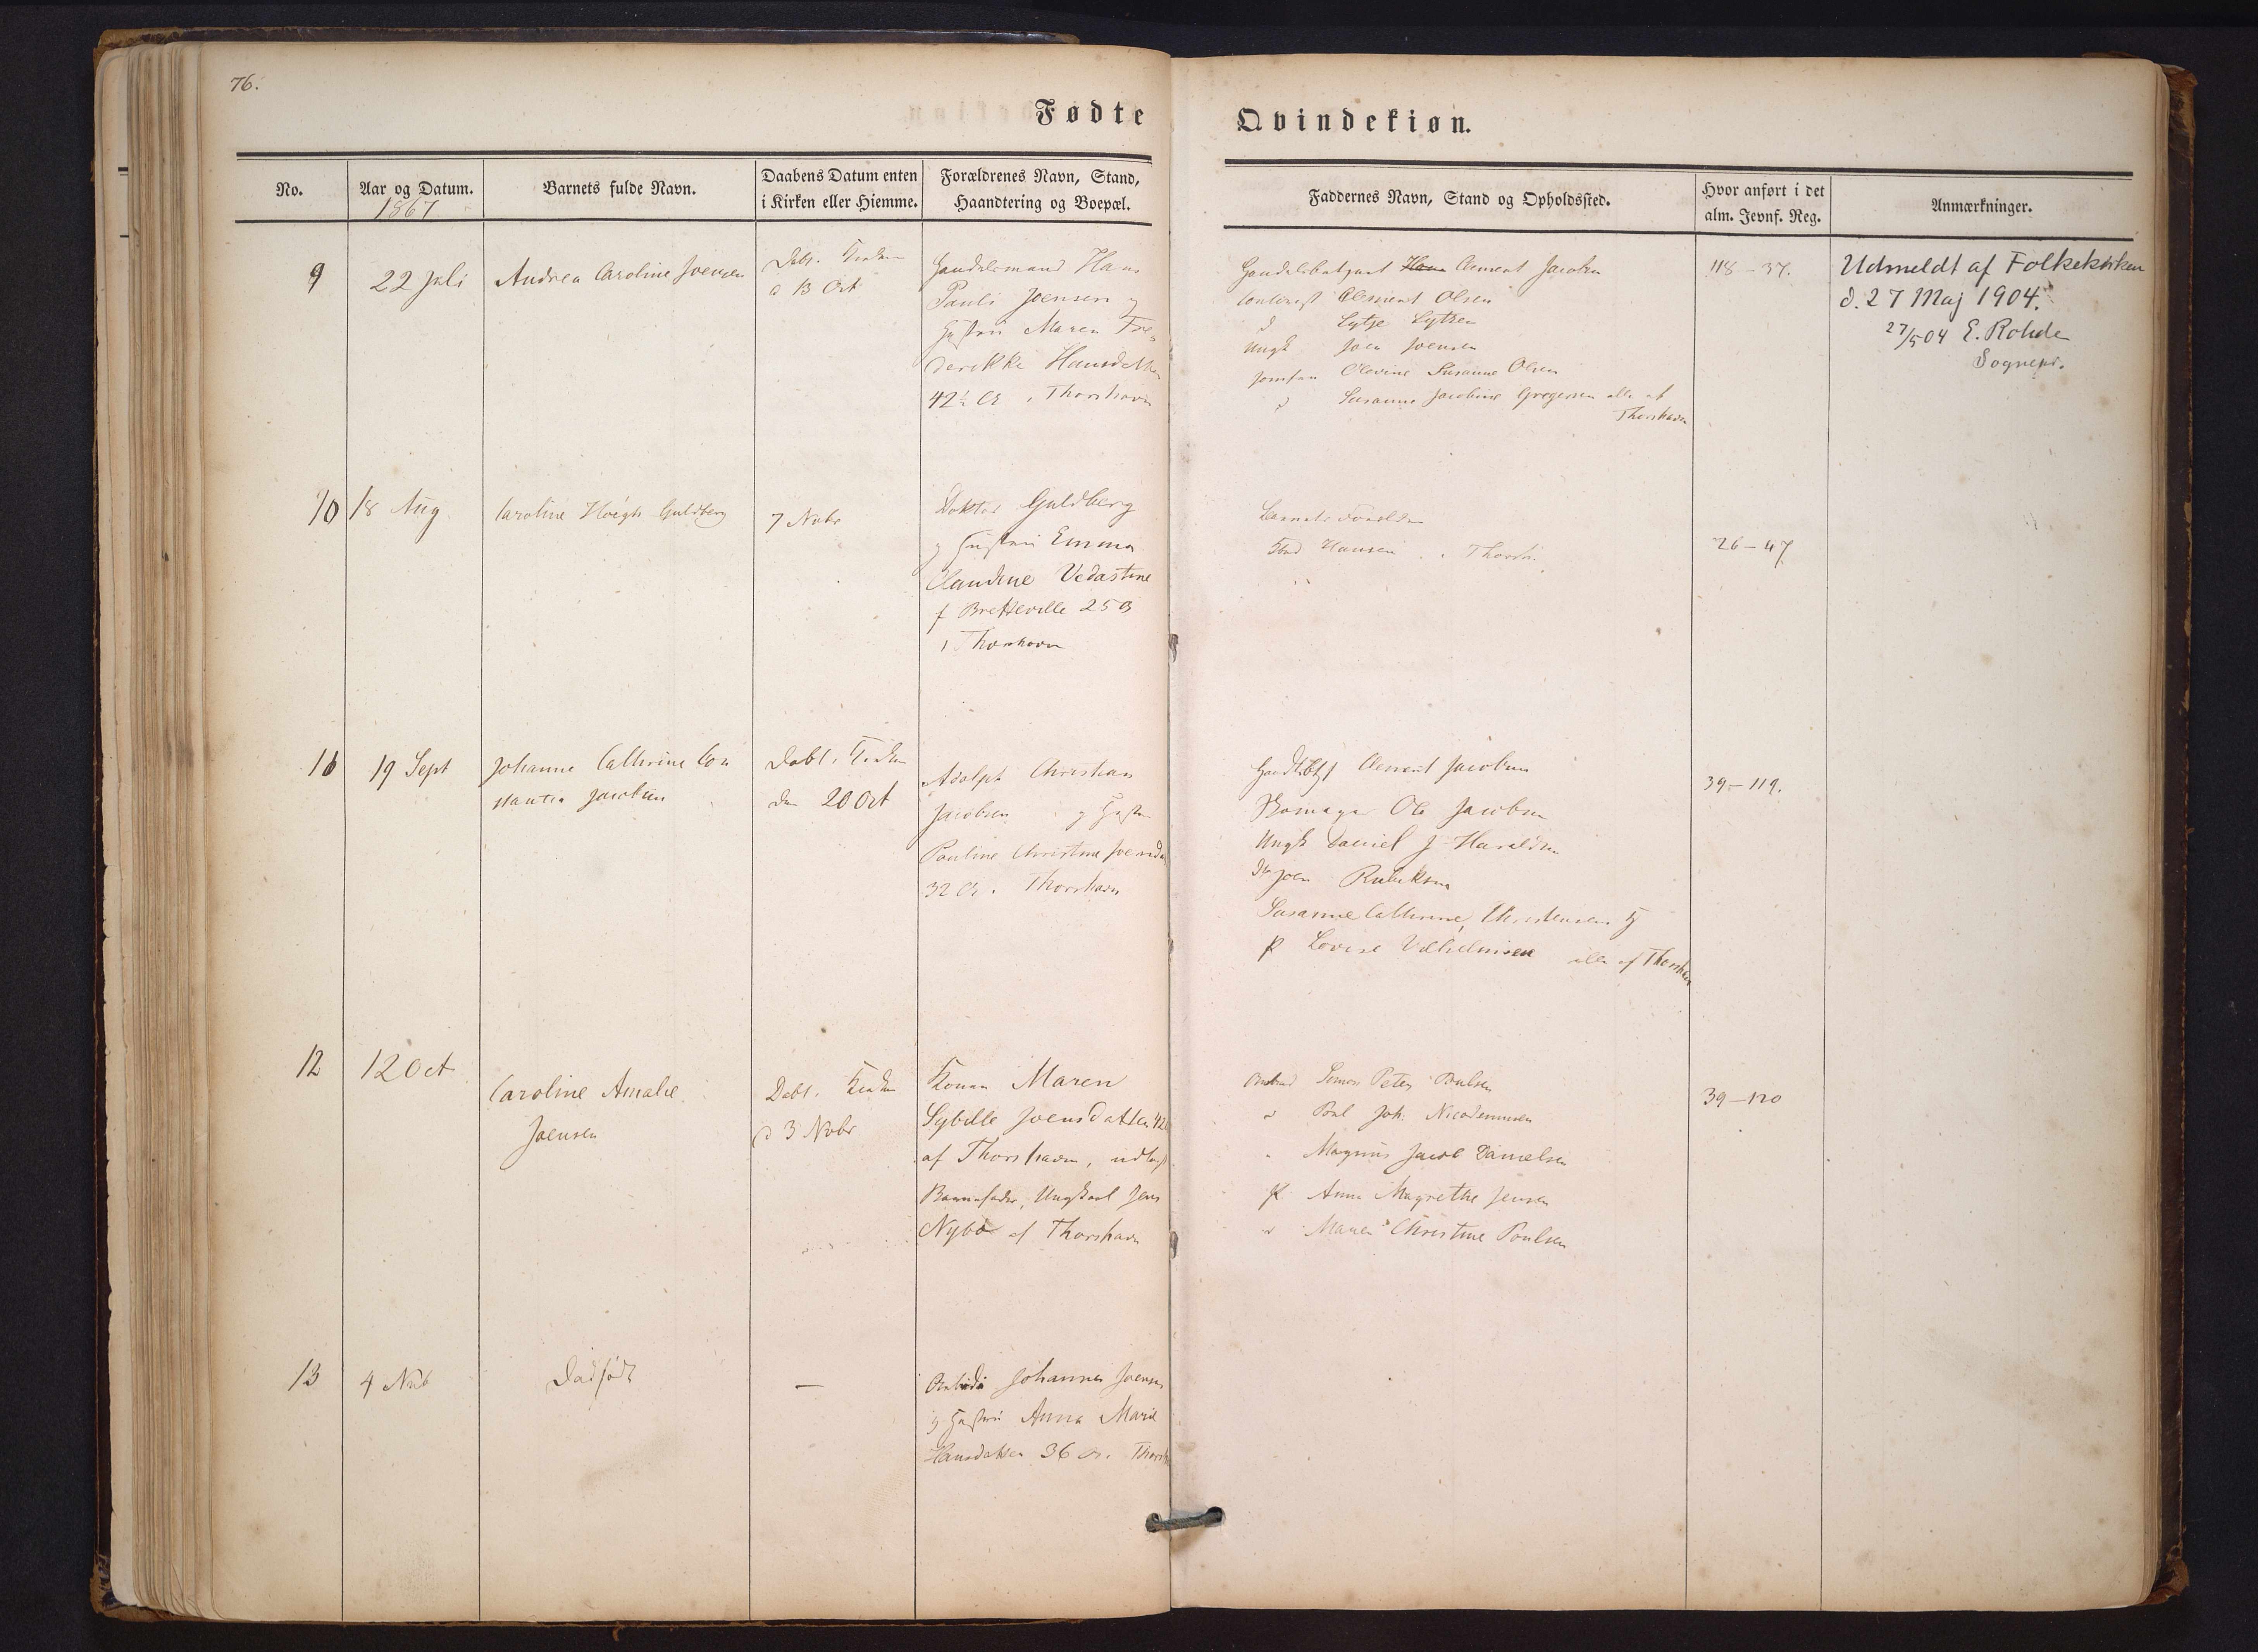 76.
Fødte
Qvindekiøn.
No.
Aar og Datum.
1867
Barnets fulde Navn.
Daabens Datum enten
i Kirken eller Hiemme.
Forældrenes Navn, Stand,
Haandtering og Boepæl.
Faddernes Navn, Stand og Opholdssted.
Hvor anført i det
alm. Jevnf. Reg.
Anmærkninger.
9
22 Juli
Andrea Caroline Joensen
Døbt i Kirken
d 13 Oct
Handelsmand Hans
Pauli Joensen og
Hustru Maren Fre-
derikke Hansdatter
42½ Thorshavn
Clement Jacobsen
Clement Olsen
Joen Joensen
Jomfru Olevine Susanne Olsen
Susanne Jacobine Gregersen alle af
Thorshavn
118 - 37.
Udmeldt af Folkekirken
d. 27 Maj 1904.
27/5 04 E. Rohde
Sognepr.
10
18 Aug
Caroline Høegh Guldberg
7 Nobr
Doktor Guldberg
og Hustru Emma
Claudine Vedastine
f Bretteville 25
i Thorshavn
Barnets Forældre
Hansen Thorsh.
26 - 47
11
19 Sept
Johanne Cathrine Con
stantia Jacobsen
Døbt i Kirken
den 20 Oct
Adolph Christian
Jacobsen og Hustru
Pauline Christine Joensd
32 Thorshavn
Clement Jacobsen
Ole Jacobsen
Ungk Daniel J Haraldsen
Do Joen
Susanne Cathrine Christensen
Lovise Vilhelmsen alle af Thorshavn
39 - 119.
12
12 Oct
Caroline Amalie
Joensen
Døbt i Kirken
d 3 Nobr
Konen Maren
Sybille Joensdatter 42
af Thorshavn, udlagt
Barnefader, Ungkarl Jens
Nybo af Thorshavn
Simon Peter Poulsen
Poul Joh. Nicodemussen
Magnus Jacob Danielsen
P Anna Magrethe Jensen
Maren Christine Poulsen
39 - 120
13
4 Nvb
Dødfødt
—
Johannes Joensen
og Hustru Anna Marie
Hansdatter 36 Thorsh